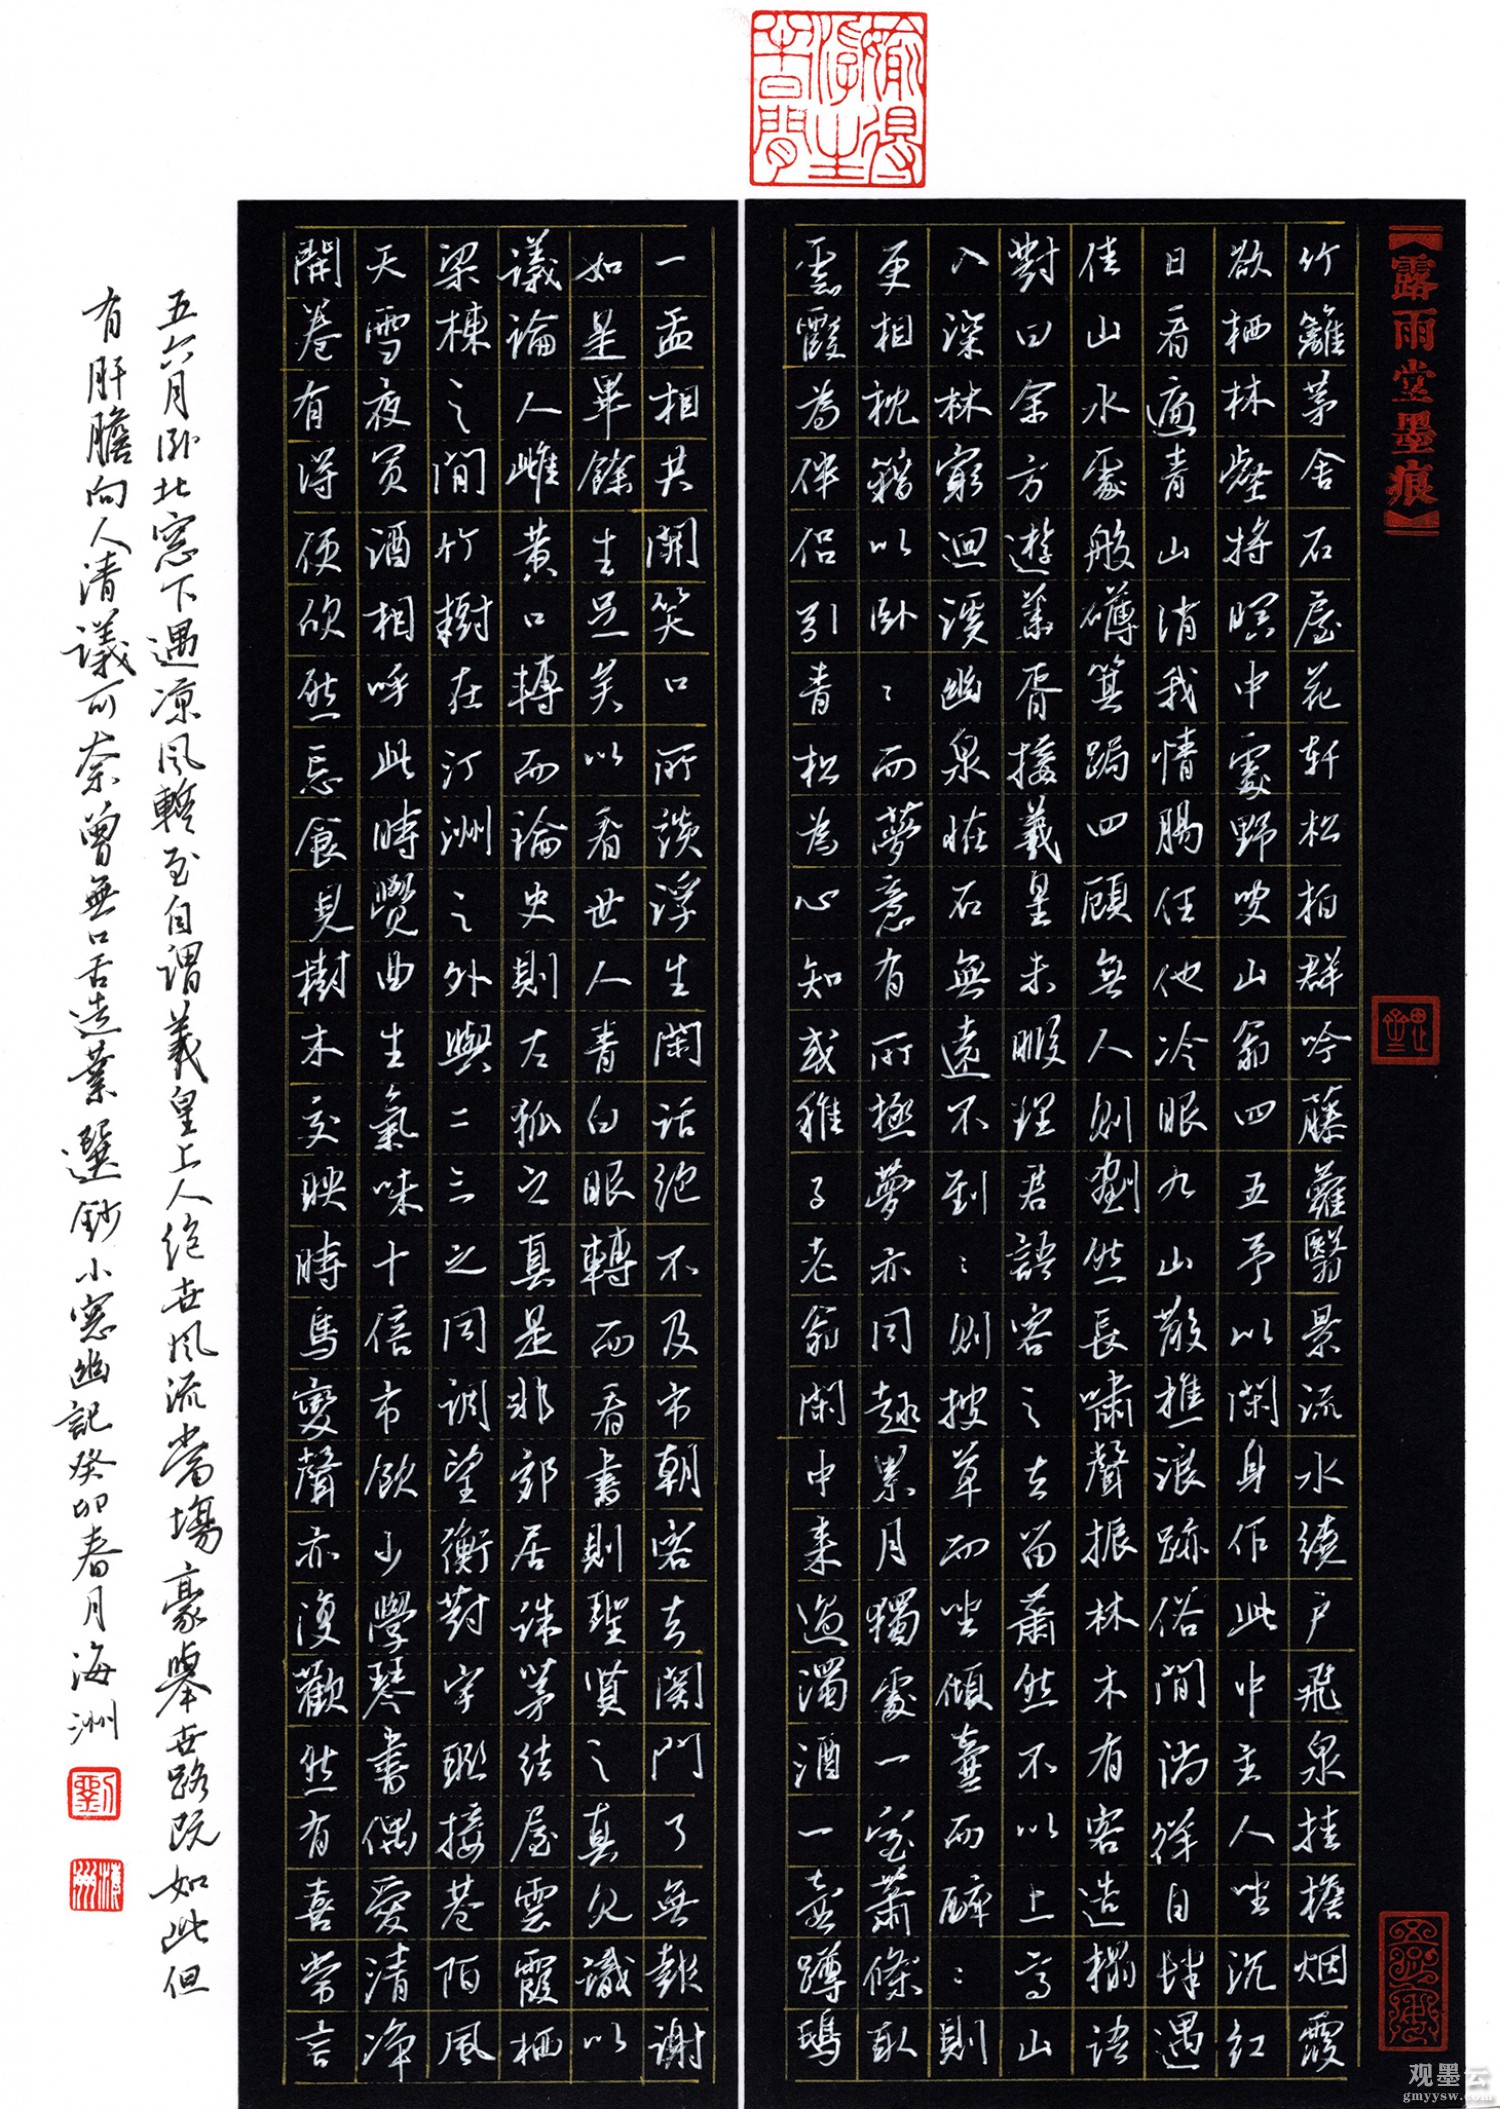 偷得浮生半日閒
【露雨堂墨痕】
竹籬茅舍石屋花軒松柏群吟藤蘿翳景流水繞户飛泉挂檐烟霞
欲栖林壑將暝中處野叟山翁四五予以閑身作此中主人坐沉紅
日看遍青山消我情腸任他冷眼九山散樵浪跡俗間徜徉自肆遇
佳山水處般礴箕踞四顧無人則劃然長嘯聲振林木有客造榻語
對曰余方遊華胥接羲皇未暇理君語客之去留蕭然不以上高山
入深林窮迴溪幽泉怪石無遠不到:則披草而坐傾壺而醉:則
更相枕籍以卧:而夢意有所極夢亦同趣累月獨處一室蕭條取
雲霞為伴侣引青松為心知或稚子老翁閑中来過濁酒一壺蹲鴟
一盂相共開笑口所談浮生閑話絶不及市朝客去關門了無報謝
如是畢餘生足矣以看世人青白眼轉而看書則聖賢之真見識以
議論人雌黄口轉而論史則左狐之真是非郊居誅茅結屋雲霞栖
梁棟之間竹樹在汀洲之外與二三之同調望衡對宇聯接巷陌風
天雪夜買酒相呼此時覺曲生氣味十倍市飲少學琴書偶愛清净
開卷有得便欣然忘食見樹木交映時鳥變聲亦復歡然有喜常言
五六月卧北窓下遇凉風暫至自謂羲皇上人絶世風流當場豪舉世路既如此但
有肝膽向人清議可奈曾無口舌造業選鈔小窓幽記癸卯春月海洲
劉
海洲
观墨云
gmyysw.com